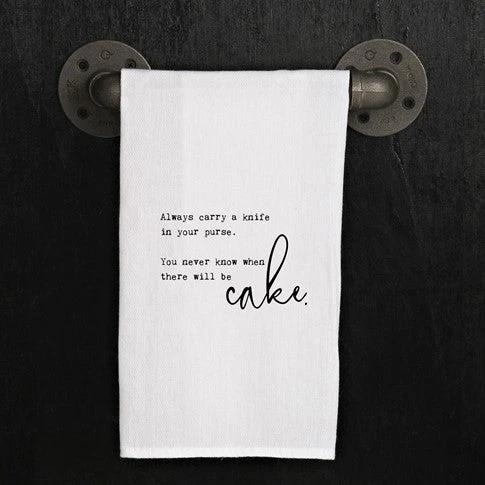 Always carry a knife
in your purse.
You never know when
there will be
cake.